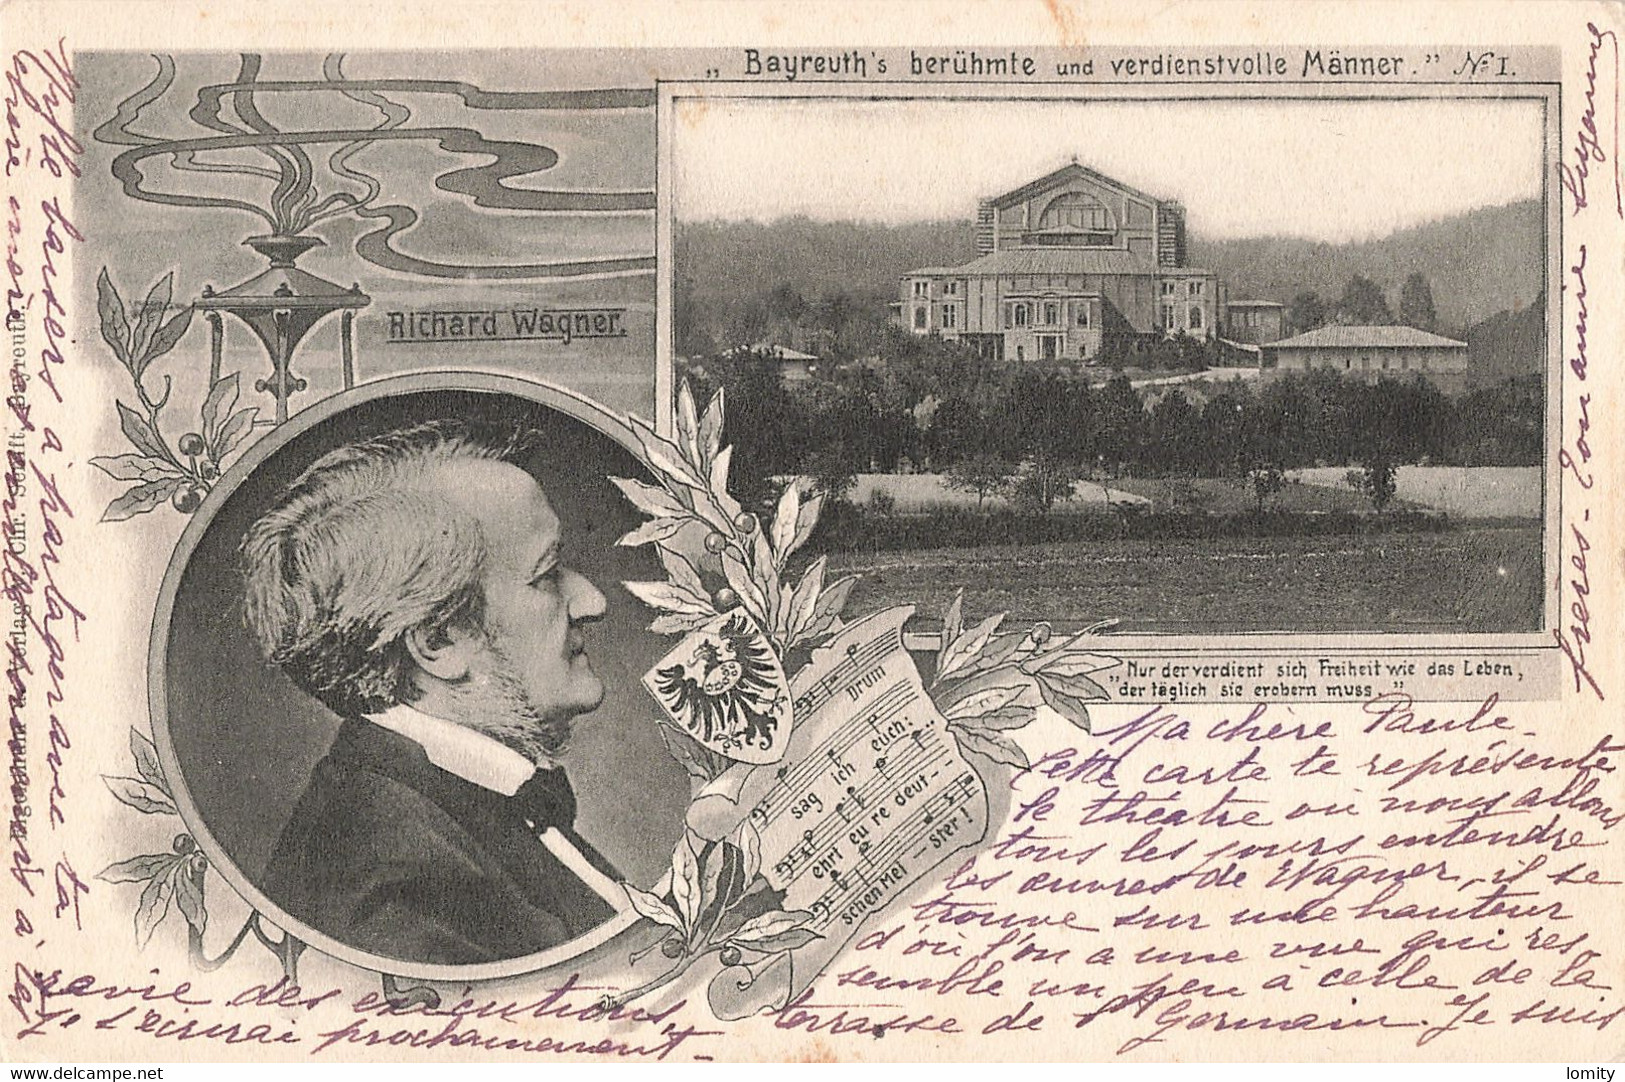 „Bayreuth's berühmte und verdienstvolle Männer." № I.
Richard Wagner.
„Nur der verdient sich Freiheit wie das Leben,
der täglich sie erobern muss."
Drum
sag ich euch:
ehrt eu re deut - -
schen Mei — ster!
Verlag Chr. Senft, Bayreuth.
Ma chère Paule -
Cette carte te représente
le théatre où nous allons
tous les jours entendre
les œuvres de Wagner, il se
trouve sur une hauteur
d'où l'on a une vue qui res-
semble un peu à celle de la
terrasse de St Germain. Je suis
ravie des exécutions,
Je t'écrirai prochainement -
Mille baisers à partager avec ta
chère mère
frères - Ton amie Suzanne
delcampe.net
lomity